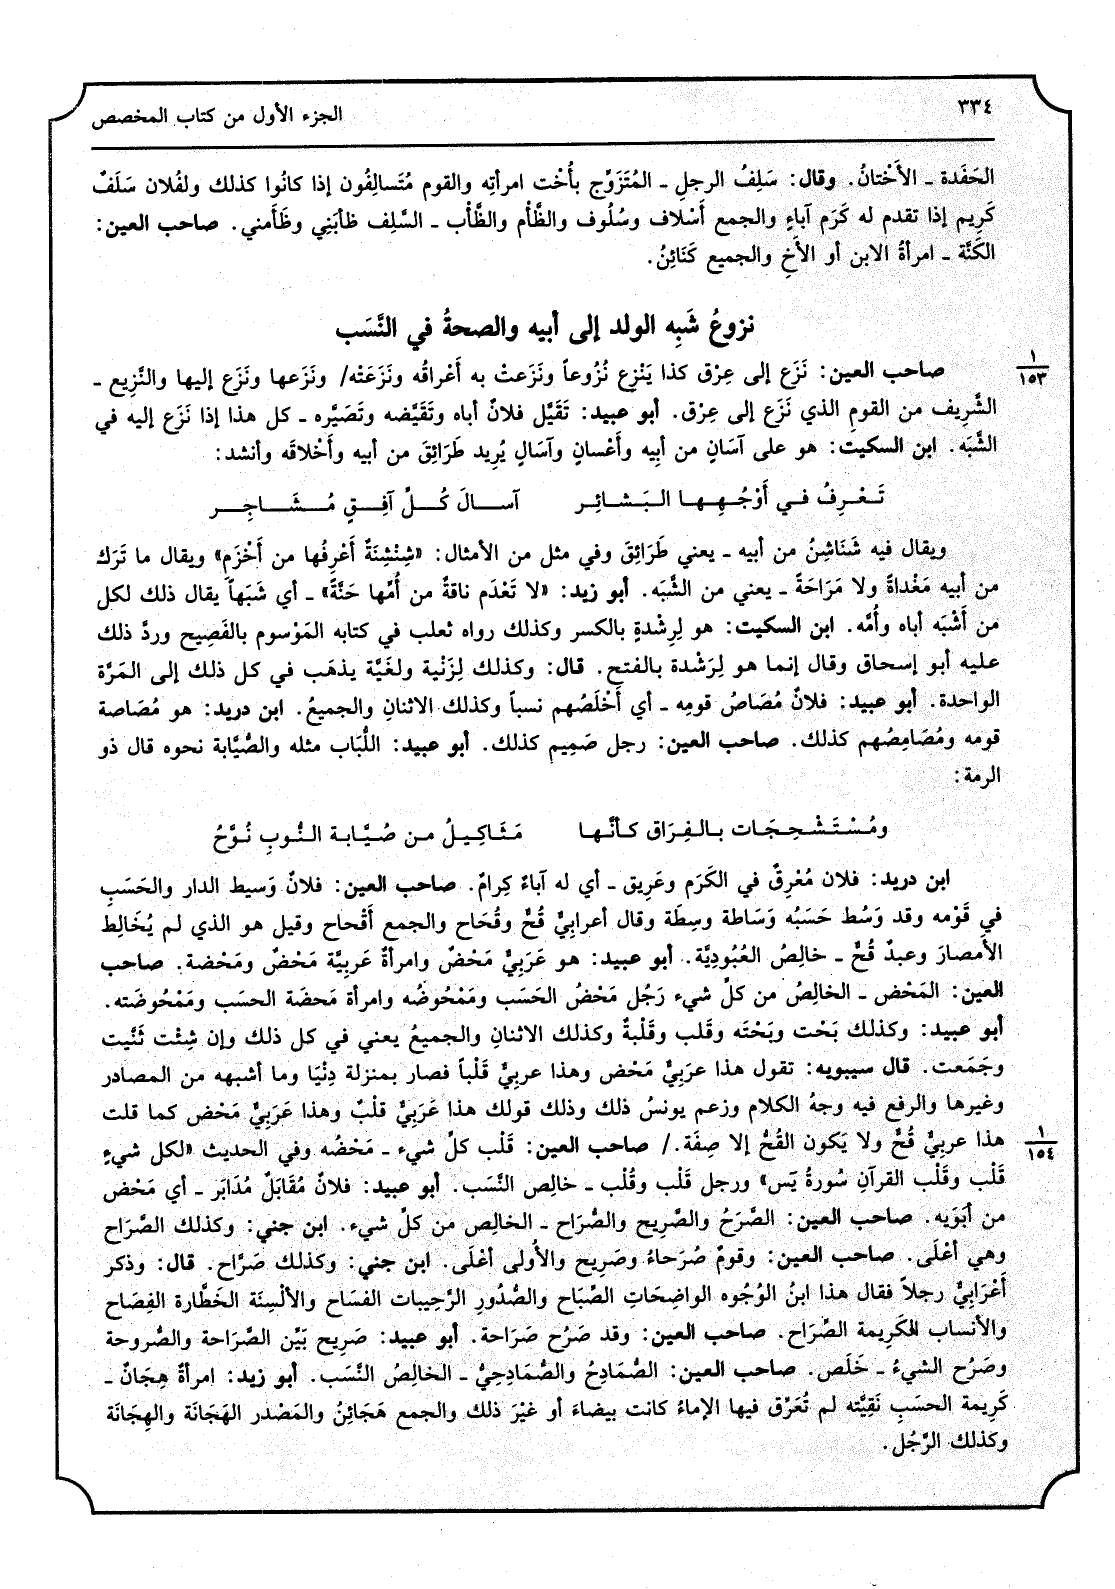 ٣٣٤
الجزء الأول من كتاب المخصص
الحَفَدة ـ الأَخْتانُ. وقال: سَلِفُ الرجلِ ـ المُتَزَوِّج بأُخْت امرأتِه والقوم مُتَسالِفُون إذا كانُوا كذلك ولفُلان سَلَفٌ
كَرِيم إذا تقدم له كَرَم آباءٍ والجمع أَسْلاف وسُلُوف والظَّأْم والظَّأْب ـ السَّلِف ظأبَنِي وظَأَمني. صاحب العين:
الكَنَّة ـ امرأةُ الابن أو الأَخِ والجميع كَنَائِنُ.
نزوعُ شَبِه الولد إلى أبيه والصحةُ في النَّسَب
١
١٥٣
صاحب العين: نَزَع إلى عِرْق كذا يَنْزِع نُزُوعاً ونَزَعتْ به أَعْراقُه ونَزَعَتْه/ ونَزَعها ونَزَع إليها والنَّزِيع ـ
الشَّرِيف من القومِ الذي نَزَع إلى عِرْق. أبو عبيد: تَقَيَّل فلانٌ أباه وتَقَيَّضه وتَصَيَّره ـ كل هذا إذا نَزَع إليه في
الشَّبَه. ابن السكيت: هو على آسَانٍ من أبِيه وأَعْسانٍ وآسَالٍ يُرِيد طَرَائِقَ من أبيه وأَخْلاقَه وأنشد:
تَعْرِفُ في أَوْجُهِها البَشائِر آسالَ كُلِّ آفِقٍ مُشَاجِر
ويقال فيه شَنَاشِنُ من أبيه ـ يعني طَرَائِقَ وفي مثل من الأمثال: «شِنْشِنَةٌ أَعْرِفُها من أَخْزَم» ويقال ما تَرَك
من أبيه مَغْداةً ولا مَرَاحَةً ـ يعني من الشَّبَه. أبو زيد: «لا تَعْدَم ناقةٌ من أُمِّها حَنَّةً» ـ أي شَبَهاً يقال ذلك لكل
من أَشْبَه أباه وأُمَّه. ابن السكيت: هو لِرِشْدةٍ بالكسر وكذلك رواه ثعلب في كتابه المَوْسوم بالفَصِيح وردَّ ذلك
عليه أبو إسحاق وقال إنما هو لِرَشْدة بالفتح. قال: وكذلك لِزَنْية ولغَيَّة يذهَب في كل ذلك إلى المَرَّة
الواحدة. أبو عبيد: فلانٌ مُصَاصُ قومِه ـ أي أَخْلَصُهم نسباً وكذلك الاثنانِ والجميعُ. ابن دريد: هو مُصَاصة
قومه ومُصَامِصُهم كذلك. صاحب العين: رجل صَمِيم كذلك. أبو عبيد: اللُّبَاب مثله والصُّيَّابة نحوه قال ذو
الرمة:
ومُسْتَشْحِجَات بالفِرَاق كأنَّها مَثَاكِيلُ من صُيَّابة النُّوبِ نُوَّحُ
ابن دريد: فلان مُعْرِقٌ في الكَرَم وعَرِيق ـ أي له آباءٌ كِرامٌ. صاحب العين: فلانٌ وَسيط الدار والحَسَبِ
في قَوْمه وقد وَسُط حَسَبُه وَسَاطة وسِطَة وقال أعرابِيٌّ قُحٌّ وقُحَاح والجمع أَقْحاح وقيل هو الذي لم يُخَالِط
الأمصارَ وعبدٌ قُحٌّ ـ خالِصُ العُبُودِيَّة. أبو عبيد: هو عَرَبِيٌّ مَحْضٌ وامرأةٌ عَربيَّة مَحْضٌ ومَحْضة. صاحب
العين: المَحْض ـ الخالِصُ من كلِّ شيء رَجُل مَحْضُ الحَسَب ومَمْحُوضُه وامرأة مَحضَة الحسَب ومَمْحُوضَته.
أبو عبيد: وكذلك بَحْت وبَحْتَه وقَلب وقَلْبةٌ وكذلك الاثنانِ والجميعُ يعني في كل ذلك وإن شِئْت ثَنَّيت
وجَمَعت. قال سيبويه: تقول هذا عرَبِيٌّ مَحْض وهذا عربِيٌّ قَلْباً فصار بمنزلة دِنْيَا وما أشبهه من المصادر
وغيرها والرفع فيه وجهُ الكلام وزعم يونسُ ذلك وذلك قولك هذا عَرَبِيٌّ قلبٌ وهذا عَرَبِيٌّ مَحْض كما قلت
١
١٥٤
هذا عربِيٌّ قُحٌّ ولا يَكون القُحُّ إلا صِفَة./ صاحب العين: قَلْب كلِّ شيء ـ مَحْضُه وفي الحديث «لكل شيءٍ
قَلْب وقَلْب القرآنِ سُورةُ يَس» ورجل قَلْب وقُلْب ـ خالِص النَّسَب. أبو عبيد: فلانٌ مُقَابَلٌ مُدَابَر ـ أي مَحْض
من أبَوَيه. صاحب العين: الصَّرَحُ والصَّرِيح والصُّرَاح ـ الخالِص من كلِّ شيء. ابن جني: وكذلك الصَّرَاح
وهي أعْلَى. صاحب العين: وقومٌ صُرَحاءُ وصَرِيح والأُولى أعْلَى. ابن جني: وكذلك صَرَّاح. قال: وذكر
أَعْرَابِيٌّ رجلاً فقال هذا ابنُ الوُجُوه الواضِحَاتِ الصِّبَاح والصُّدُورِ الرَّحِيبات الفسَاح والألْسِنَة الخَطَّارة الفِصَاح
والأنساب الكَرِيمة الصِّرَاح. صاحب العين: وقد صَرُح صَرَاحة. أبو عبيد: صَرِيح بَيِّن الصَّرَاحة والصُّروحة
وصَرُح الشيءُ ـ خَلَص. صاحب العين: الصُّمَادِحُ والصُّمَادِحِيُّ ـ الخالِصُ النَّسَب. أبو زيد: امرأةٌ هِجَانٌ ـ
كَرِيمة الحسَبِ نَقِيَّته لم تُعَرِّق فيها الإماءُ كانت بيضاءَ أو غيْرَ ذلك والجمع هَجَائِنُ والمَصْدر الهَجَانَة والهِجَانَة
وكذلك الرَّجُل.